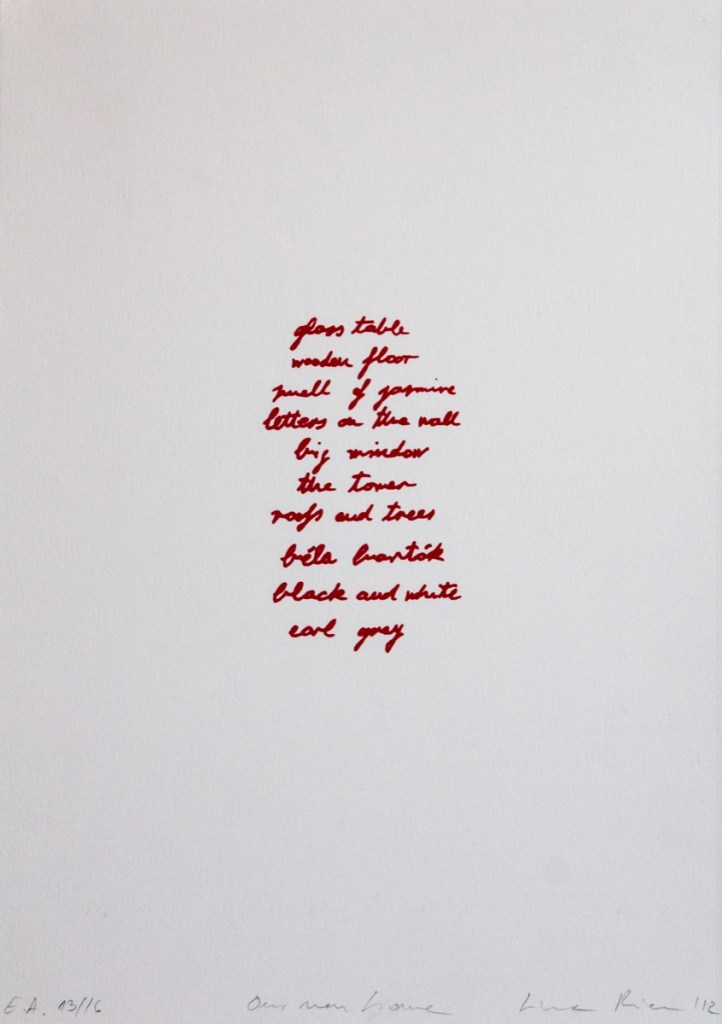 glass table
wooden floor
smell of jasmine
letters on the wall
big window
the tower
roofs and trees
béla bartók
black and white
earl grey
E.A. 13/16 Our new home '12